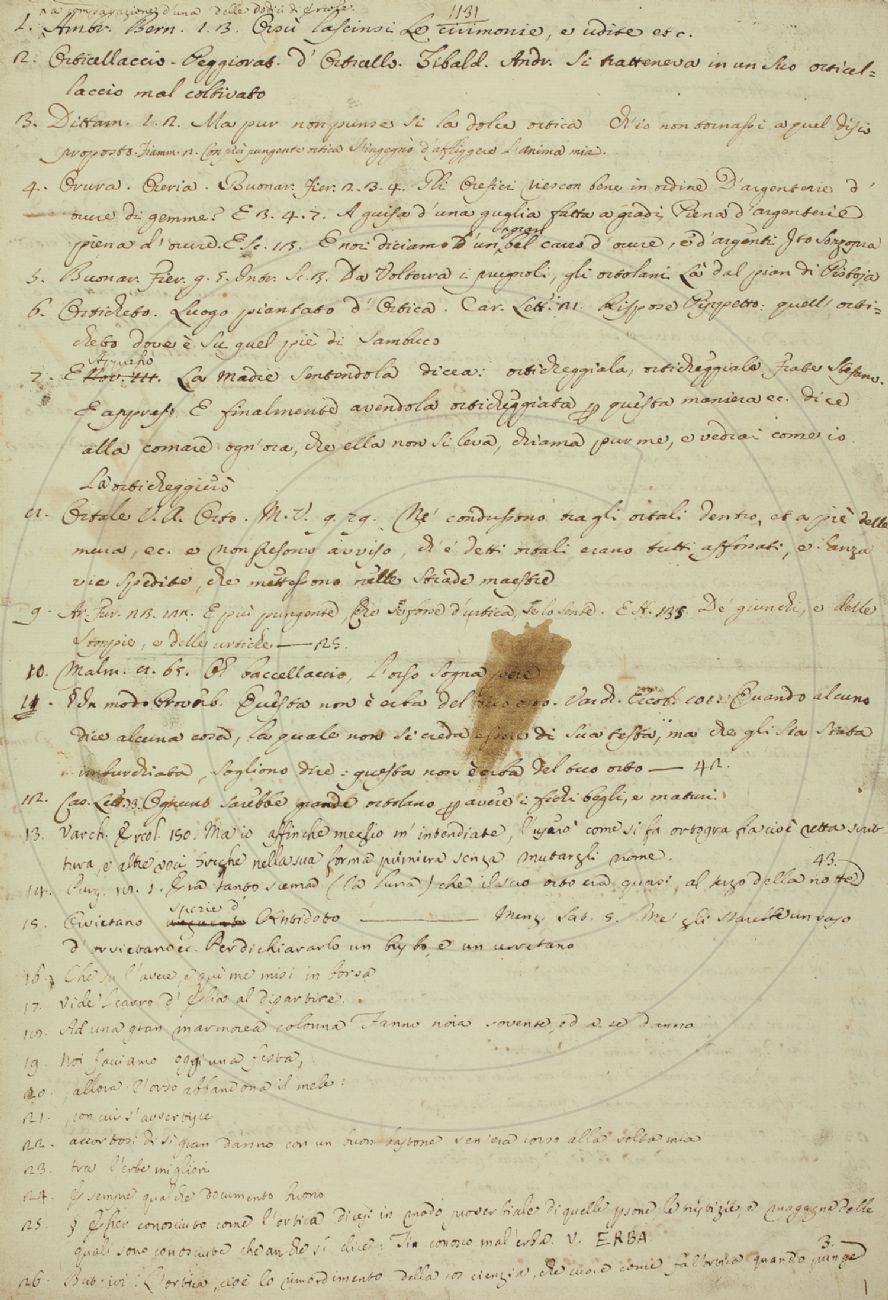 na comparazione d'una delle dodici di Ercole.
1131
1. Ambr. Bern. 1. 3. Orsù lascinsi le cirimonie, e udite etc.
2. Orticellaccio. Peggiorat. d'Orticello. Tibald. Andr. Si tratteneva in un suo orticel=
laccio mal coltivato
3. Dittam. 1. 2. Ma pur non punse sì la dolce ortica Ch'io non tornassi a quel
proposto. Fiamm. 2. Con più pungente ortica s'ingegnò d'affliggere l'anima mia.
4. Buonar. Fier. 2. 3. 4. Gli Orefici riescon bene in ordine D'argenterie d'
di gemme? E 3. 4. 7. A guisa d'una guglia fatta a gradi, Piena d'argenterie
piena d' E Sc. E noi diciamo D'un bel carco d' e d'argenti Ito
5. Buonar. Fier. g. 5. Intr. Sc. 3. Da Volterra i prugnoli, gli ortolani Là dal pian di Pistoja
6. Orticheto. Luogo piantato d'Ortica. Car. Lett. Rispose quell' orti=
cheto dove è su quel piè di Sambuco
7. E La Madre sentendola dicea: ortichèggiala, ortichèggiala Frate Stefano.
E appress. E finalmente avendola ortichèggiata p questa maniera ec. dice
alla comare ogn'ora, che ella non si leva, chiama pur me, e vedrai come io
La orticheggierò
Ortale V. A. Orto. M. V. 9. 29. Nè condussono tra gli ortali dentro, et a piè delle
mura, ec. e non presono avviso, ch'e' detti ortali erano tutti affossati, e sanza
vie spedite, che mettessono nelle strade maestre
9. Ar. Fur. E più pungente, Che se fosse d'urtica, se lo sente. E De' giunchi, e delle
stoppie, e delle urtiche — 25.
10. Malm. 65. baccellaccio, l'orso sogna pere
11. § In modo Proverb. Questa non è erba del tuo orto. Varch. Ercol. 101. Quando alcuno
dice alcuna cosa, la quale non si creda essere di sua testa, ma che gli sia stata
imburchiata, sogliono dire: questa non è erba del tuo orto — 42.
12. Car. Lett. Ognuno sarebbe grande ortolano p avere i fichi begli, e maturi
13. Varch. Ercol. 150. Ma io affinche meglio m'intendiate, l'userò come si fa ortografia cioè retta scrit-
tura, e altre voci Greche nella sua forma primiera senza mutargli nome.
43.
14. Purg. Era tanto scema (la luna) che il suo orto era quasi al terzo della notte
15. Orvietano spezie d' Antidoto — Menz. Sat. 5. Me' gli starebbe un vaso
d'orvietano ec. Per dichiararlo un e un orvetano
16. Che su l'avere e quì me misi in borsa
17. Vide 'l carro d'Elia al dipartire
Ad una gran marmorea colonna Fanno noia sovente, ed a se danno
19. Noi facciamo oggi una festa,
20. allora l'orso abbandona il mele:
21. con cui s'avvertisce
22. accortosi di sì gran danno con un buon bastone sen'era corso alla volta mia
23. tra l'erbe migliori
24. E sempre qualche documento buono
25. § Esser conosciuto come l'ortica dicesi in modo proverbiale di quelle psone, le nequizie, e magagne delle
quali sono conosciute che anche si dice: Tu conosco mal'erba. V. ERBA
3.
26. But. ivi: L'ortica, cioè lo rimordimento della coscienzia, che cuoce come fa l'ortica quando punge
1